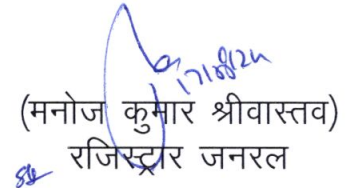 17/08/24
(मनोज कुमार श्रीवास्तव)
रजिस्ट्रार जनरल